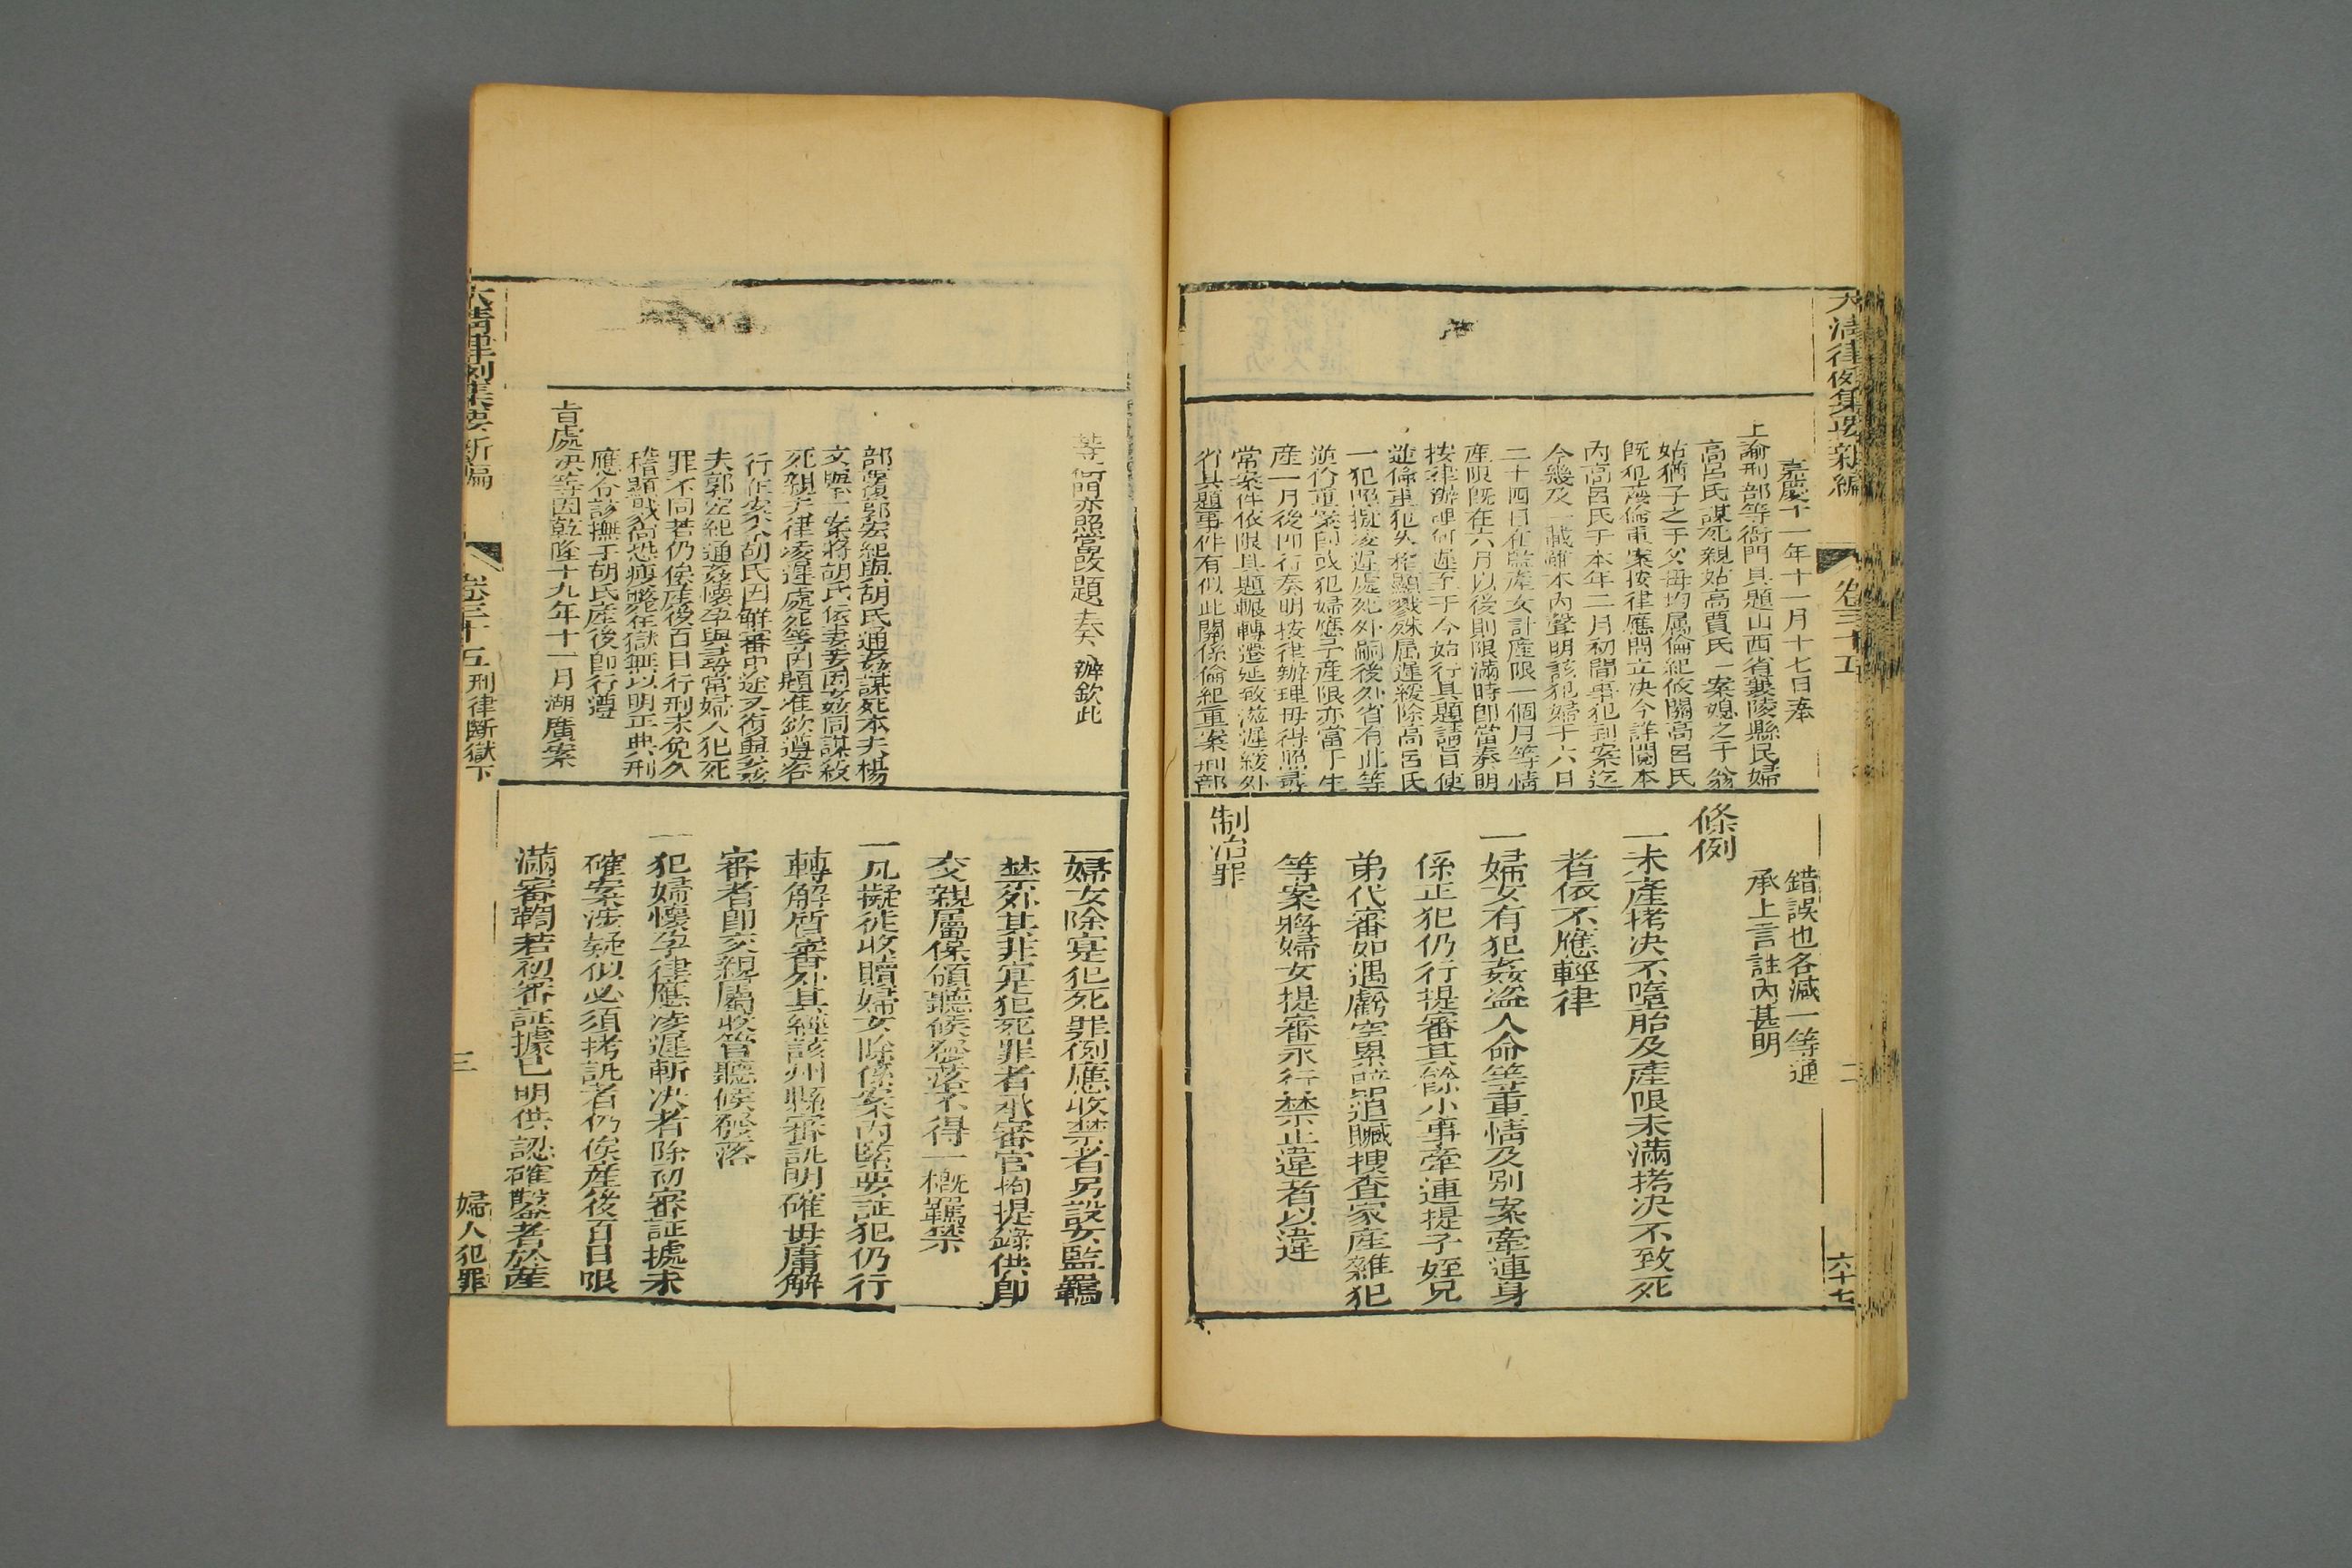 大清律例集要新編
卷三十五
二
六十七
嘉慶十一年十一月十七日奉
上諭刑部等衙門具題山西省襄陵縣民婦
高呂氏謀死親姑高賈氏一案媳之于翁
姑猶子之于父母均属倫紀攸關高呂氏
既犯蔑倫重案按律應問立决今詳閱本
內高呂氏于本年二月初間事犯到案迄
今幾及一載雖本內聲明該犯婦于六月
二十四日在監產女計產限一個月等情
產限既在六月以後則限滿時卽當奏明
按律辦理何遲至于今始行具題請旨使
逆倫重犯久稽顯戮殊属遲緩除高呂氏
一犯照擬凌遲處死外嗣後外省有此等
逆倫重案卽或犯婦應予產限亦當于生
產一月後卽行奏明按律辦理毋得照尋
常案件依限具題輾轉遷延致滋遲緩外
省具題事件有似此關係倫紀重案刑部
錯誤也各減一等通
承上言註內甚明
條例
一未產拷决不墮胎及產限未滿拷决不致死
者依不應輕律
一婦女有犯姦盗人命等重情及别案牽連身
係正犯仍行提審其餘小事牽連提子姪兄
弟代審如遇虧空累賠追贓搜查家產雜犯
等案將婦女提審永行禁止違者以違
制治罪
等衙門亦照當改題奏辦欽此
部覆郭宏紀與胡氏通姦謀死本夫楊
文與一案將胡氏依妻妾因姦同謀殺
死親夫律凌遲處死等因題准欽遵咨
行在案今胡氏因解審中途又復與姦
夫郭宏紀通姦懷孕與尋常婦人犯死
罪不同若仍俟產後百日行刑未免久
稽顯戮尚恐瘐斃在獄無以明正典刑
應令該撫于胡氏產後卽行遵
旨處决等因乾隆十九年十一月湖廣案
一婦女除寔犯死罪例應收禁者另設女監羈
禁外其非寔犯死罪者承審官拘提錄供卽
交親屬保領聽候發落不得一概羈禁
一凡擬徒收贖婦女除係案內緊要証犯仍行
轉解質審外其經該州縣審訊明確毋庸解
審者卽交親屬收管聽候發落
一犯婦懷孕律應凌遲斬决者除初審証據未
確案涉疑似必須拷訊者仍俟產後百日限
滿審鞫若初審証據已明供認確鑿者於產
大清律例集要新編
卷三十五刑律斷獄下
三
婦人犯罪